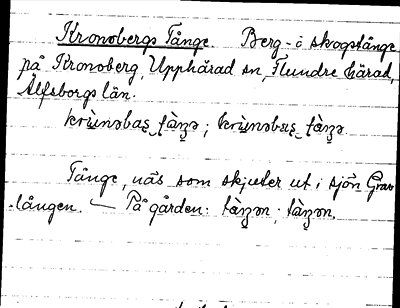 Kronobergs Tånge. Berg- o skogstånge
på Kronoberg, Upphärad sn, Flundre härad,
Älfsborgs län.
krùnəbas tàŋə; krùnəbas tàŋə
Tånge, näs som skjuter ut i sjön Grav-
-lången. — På gården: tàŋən; tàŋən.